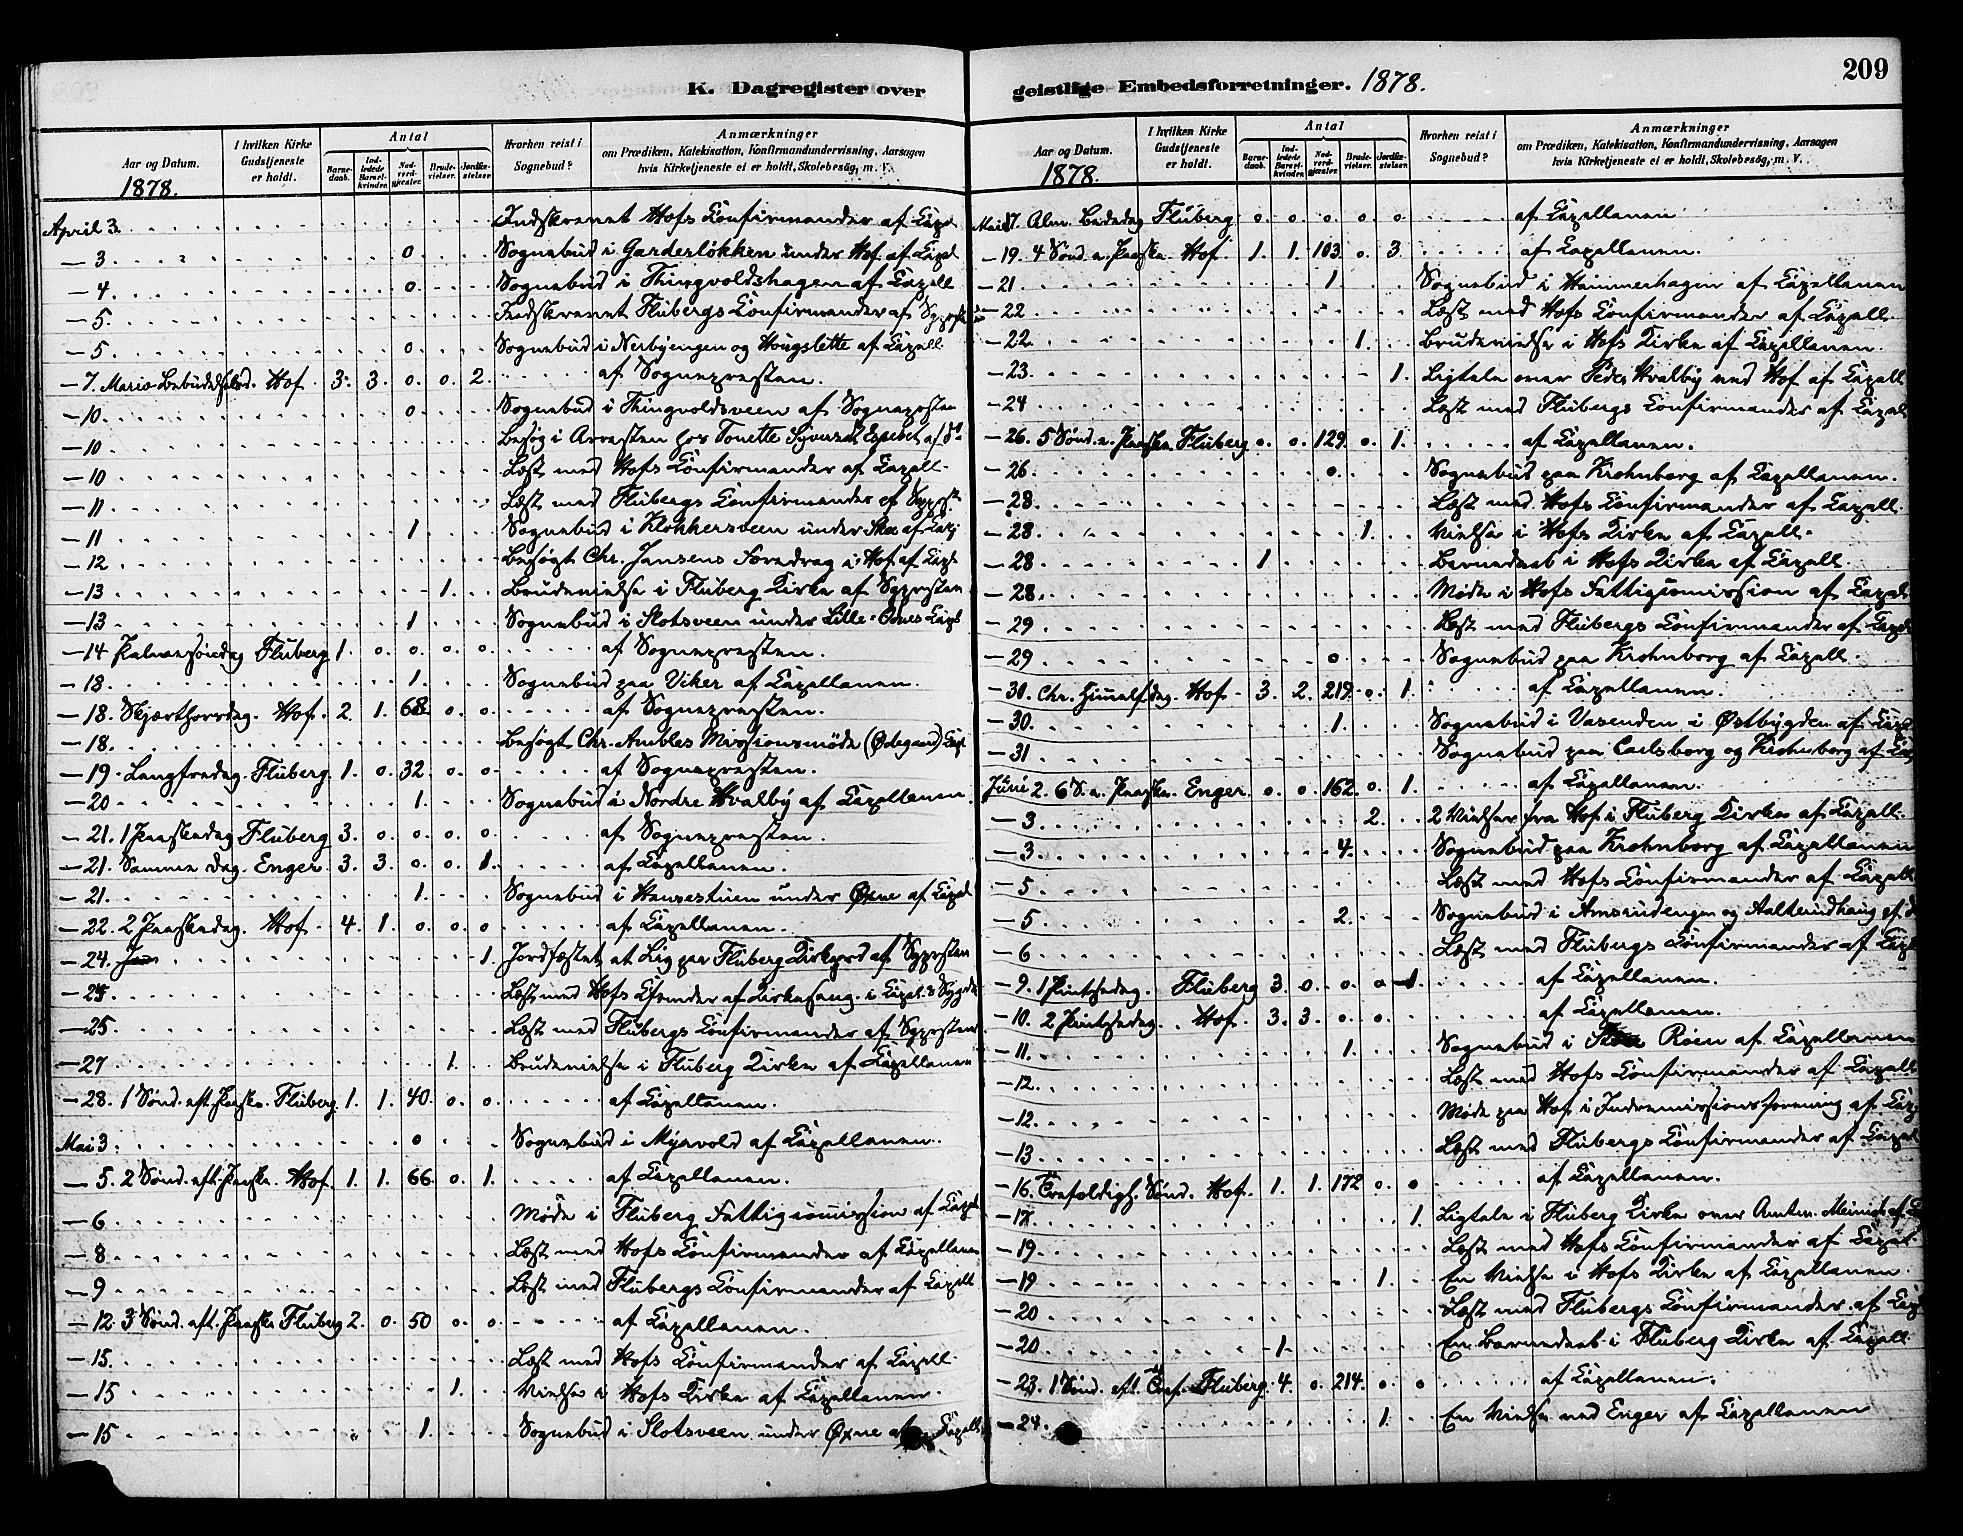 K. Dagregister over
Aar og Datum.
1878.
I hvilken Kirke Gudstjeneste er holdt.
Antal
Barnedaab.
Indledede Barselkvinder.
Nadverdgjæster.
Brudevielser.
Jordfæstelser.
Hvorhen reist i Sognebud?
Anmærkninger
om Prædiken, Katekisation, Konfirmandundervisning, Aarsagen
hvis Kirketjeneste ei er holdt, Skolebesög, m. V.
April 3. Indskrevet Hofs Confirmander af Capel
— 3. 0. Sognebud i Garderløkken under Hof af Capel
— 4. 0. Sognebud i Thingvoldshagen af Capell
— 5. Indskrevet Flubergs Confirmander af
— 5. 0. Sognebud i Nerbyengen og Hougslette af Capell.
— 7. Mariæ Bebudelsesd. Hof. 3. 3. 0. 0. 2. af Sognepresten.
— 10. 0. Sognebud i Thingvoldsveen af Sognepresten
— 10. Besøg i Arresten hos Tonette af do
— 10. Læst med Hofs Confirmander af Capell.
— 11. Læst med Flubergs Confirmander af Sgprst.
— 11. 1. Sognebud i Klokkersveen under af Cap
— 12. Besøgt Chr. Jansens Foredrag i Hof af Capl
— 13. 1. Brudevielse i Fluberg Kirke af Sgpresten
— 13. 1 Sognebud i Slotsveen under Lille-Odnes Capl
— 14 Palmesøndag Fluberg 1. 0. 0. 0. 0. af Sognepresten.
— 18. 1. Sognebud paa Viker af Capellanen.
— 18. Skjærthorsdag. Hof. 2. 1. 68. 0. 0. af Sognepresten.
— 18. Besøgt Chr. Ambles Missionsmøde (Ødegaard) Capl.
— 19. Langfredag. Fluberg. 1. 0. 32. 0. 0. af Sognepresten.
— 20 1. Sognebud i Nordre Hvalby af Capellanen.
— 21. 1 Paaskedag Fluberg 3. 0. 0. 0. 0. af Sognepresten.
— 21. Samme Dag. Enger. 3. 3. 0. 0. 1. af Capellanen.
— 21. 1. Sognebud i Hansestuen under Øxne af Capel
— 22. 2 Paaskedag. Hof. 4. 1. 0. 0. 0 af Capellanen.
— 24. 1. Jordfæstet et Lig paa Fluberg Kirkegrd af Sgpresten
— 25 Læst med Hofs af Kirkesang. i Capel.
— 25. Læst med Flubergs Confirmander af Sgpresten
— 27 1. Brudevielse i Fluberg Kirke af Capellanen
— 28. 1 Sønd. eft. Paaske. Fluberg. 1. 1. 40. 0. 0. af Capellanen.
Mai 3. 0. Sognebud i Myrvold af Capellanen.
— 5. 2 Sønd. eft. Paaske. Hof. 1. 1. 66. 0. 1. af Capellanen.
— 6 Møde i Fluberg Fattigcomission af Capel.
— 8 Læst med Hofs Confirmander af Capellanen
— 9 Læst med Flubergs Confirmander af Capell
— 12. 3 Sønd. eft. Paaske Fluberg 2. 0. 50 0. 0. af Capellanen.
— 15. Læst med Hofs Confirmander af Capell.
— 15 1. Vielse i Hofs Kirke af Capellanen.
— 15 1. Sognebud i Slotsveen under Øxne af Capell.
geistlige Embedsforretninger. 1878.
209
Aar og Datum.
1878.
I hvilken Kirke Gudstjeneste er holdt.
Antal
Barnedaab.
Indledede Barselkvinder.
Nadverdgjæster.
Brudevielser.
Jordfæstelser.
Hvorhen reist i Sognebud?
Anmærkninger
om Prædiken, Katekisation, Konfirmandundervisning, Aarsagen
hvis Kirketjeneste ei er holdt, Skolebesög, m. V.
Mai 17. Alm. Bededag Fluberg 0. 0. 0. 0. 0. af Capellanen
— 19. 4 Sønd. e. Paaske Hof. 1. 1. 103. 0. 3. af Capellanen.
— 21. 1. Sognebud i Hammerhagen af Capellanen
— 22 Læst med Hofs Confirmander af Capell.
— 22. 1. Brudevielse i Hofs Kirke af Capellanen.
— 23. 1. Ligtale over Peder Hvalby ved Hof af Capell
— 24 Læst med Flubergs Confirmander af Capel
— 26. 5 Sønd. e. Paaske Fluberg 0. 0. 129. 0. 1. af Capellanen.
— 26. 0. Sognebud paa Krohnborg af Capellanen.
— 28. Læst med Hofs Confirmander af Capell.
— 28 1. Vielse i Hofs Kirke af Capell.
— 28 1 Barnedaab i Hofs Kirke af Capell.
— 28. Møde i Hofs Fattigcomission af Capel
— 29 Læst med Flubergs Confirmander af Capel
— 29 0. Sognebud paa Krohnborg af Capell.
— 30. Chr. Himelfdag. Hof. 3. 2. 219. 0. 1. af Capellanen.
— 30. 1. Sognebud i Vasenden i Østbygden af Capl
— 31 Sognebud paa Carlsborg og Krohnborg af Cap
Juni 2. 6 S. e. Paaske. Enger. 0. 0. 162. 0. 1. af Capellanen.
— 3. 2. 2 Vielser fra Hof i Fluberg Kirke af Capell.
— 3. 4. Sognebud paa Krohnborg af Capellanen
— 5 Læst med Hofs Confirmander af Capell
— 5 2. Sognebud i Amrudengen og Aalterudhaug af d
— 6 Læst med Flubergs Confirmander af Cap
— 9. 1 Pintsedag. Fluberg 3. 0. 0. 0 1. af Capellanen.
— 10. 2 Pintsedag. Hof. 3. 3. 0. 0. af Capellanen.
— 11. 1. Sognebud i Roen af Capellanen
— 12. Læst med Hofs Confirmander af Capell
— 12. Møde paa Hof i Indremissionsforening af Cap
— 13 Læst med Flubergs Confirmander af Capel
— 16. Trefoldigh. Sønd. Hof. 1. 1. 172 0. 0 af Capellanen.
— 17. 1. Ligtale i Fluberg Kirke over Amtm. af C
— 19. Læst med Hofs Confirmander af Capel.
— 19 1. En Vielse i Hofs Kirke af Capellanen.
— 20 Læst med Flubergs Confirmander af Cap
— 20 1. En Barnedaab i Fluberg Kirke af Capell.
— 23. 1 Sønd. eft. Tref. Fluberg. 4. 0. 214. 0. 0 af Capellanen.
— 24. 1. En Vielse ved Enger af Capellanen